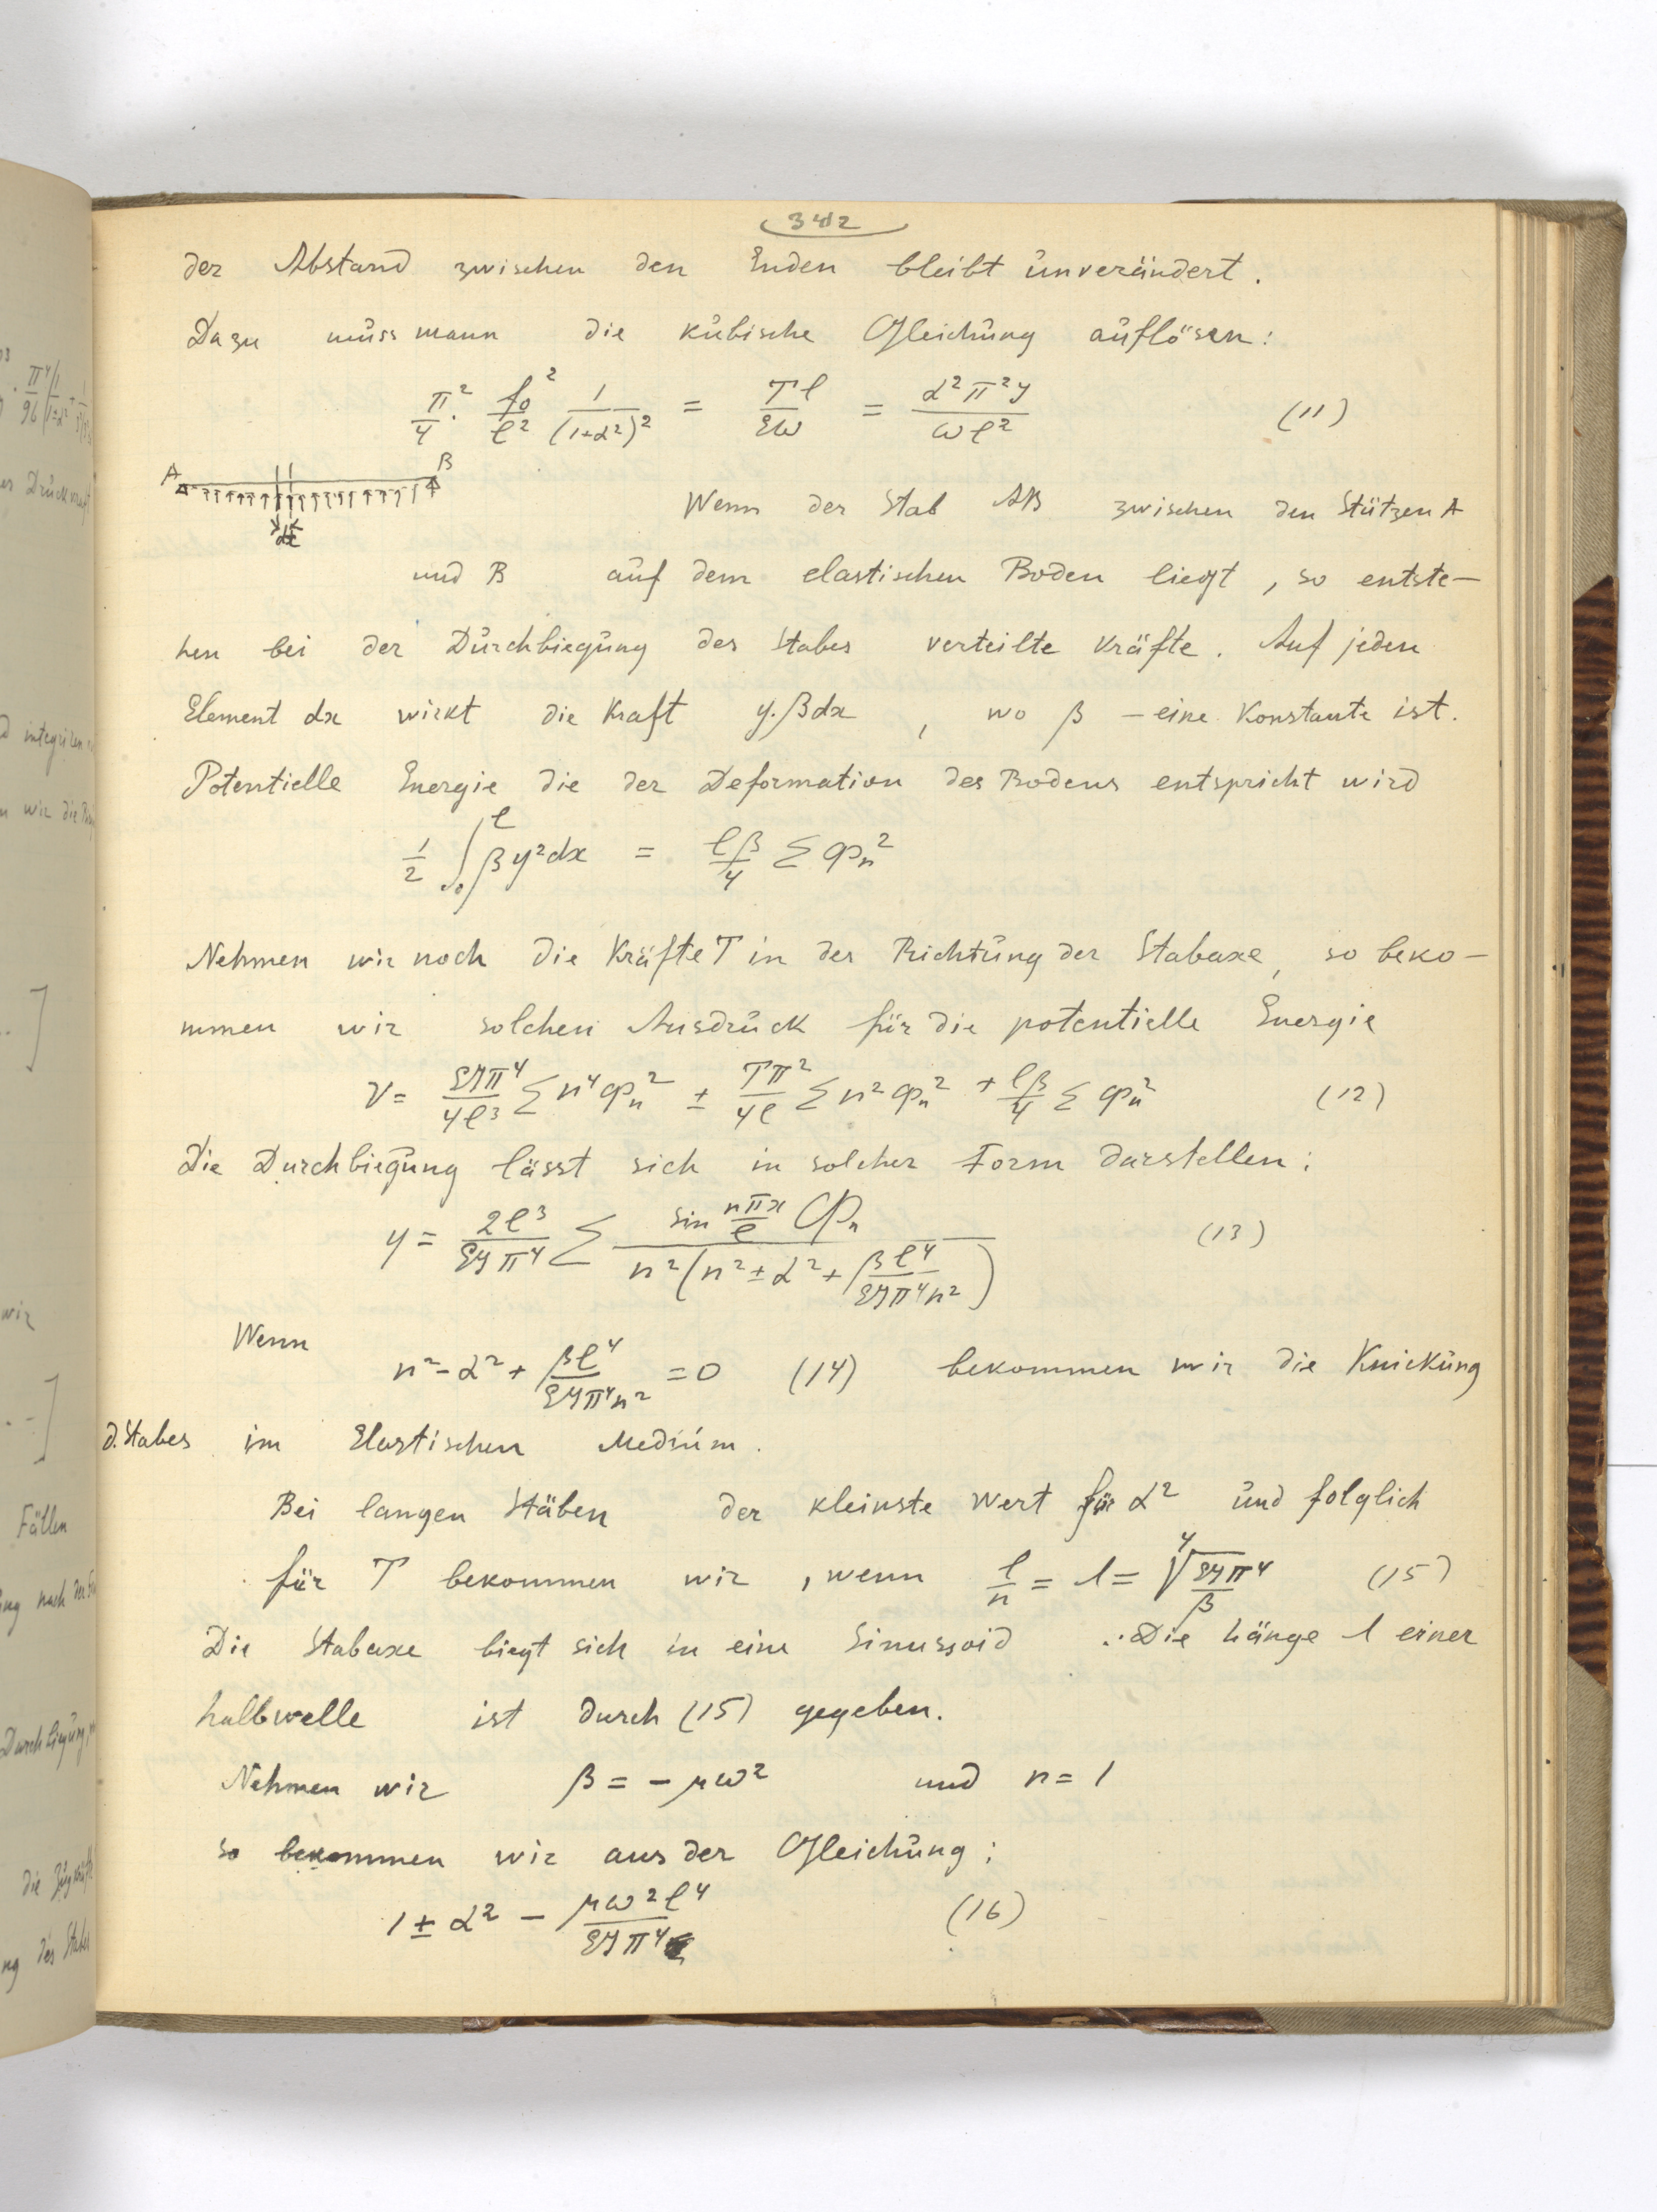 342
der Abstand zwischen den Enden bleibt unverändert.
Dazu muss mann die kubische Gleichung auflösen:
π²/4 · f₀²/l² 1/(1+α²)² = Tl/EW = α²π²J/ωl² (11)
A B
dx
Wenn der Stab AB zwischen den Stützen A
und B auf dem elastischen Boden liegt, so entste-
hen bei der Durchbiegung des Stabes verteilte Kräfte. Auf jeden
Element dx wirkt die Kraft y.βdx, wo β – eine Konstante ist.
Potentielle Energie die der Deformation des Bodens entspricht wird
1/2 ∫₀ˡ βy²dx = lβ/4 Σ φₙ²
Nehmen wir noch die Kräfte T in der Richtung der Stabaxe, so beko-
mmen wir solchen Ausdruck für die potentielle Energie
V = EJπ⁴/4l³ Σ n⁴φₙ² ± Tπ²/4l Σ n²φₙ² + lβ/4 Σ φₙ² (12)
Die Durchbiegung lässt sich in solcher Form darstellen:
y = 2l³/EJπ⁴ Σ sin nπx/l Φₙ / n²(n² ± α² + βl⁴/EJπ⁴n²) (13)
Wenn
n² - α² + βl⁴/EJπ⁴n² = 0 (14) bekommen wir die Knickung
d. Stabes im Elastischen Medium.
Bei langen Stäben der kleinste Wert für α² und folglich
für T bekommen wir, wenn l/n = λ = ⁴√EJπ⁴/β (15)
Die Stabaxe biegt sich in eine Sinussoid. Die Länge λ einer
halbwelle ist durch (15) gegeben.
Nehmen wir β = - μω² und n = 1
so bekommen wir aus der Gleichung:
1 ± α² - μω²l⁴/EJπ⁴ (16)